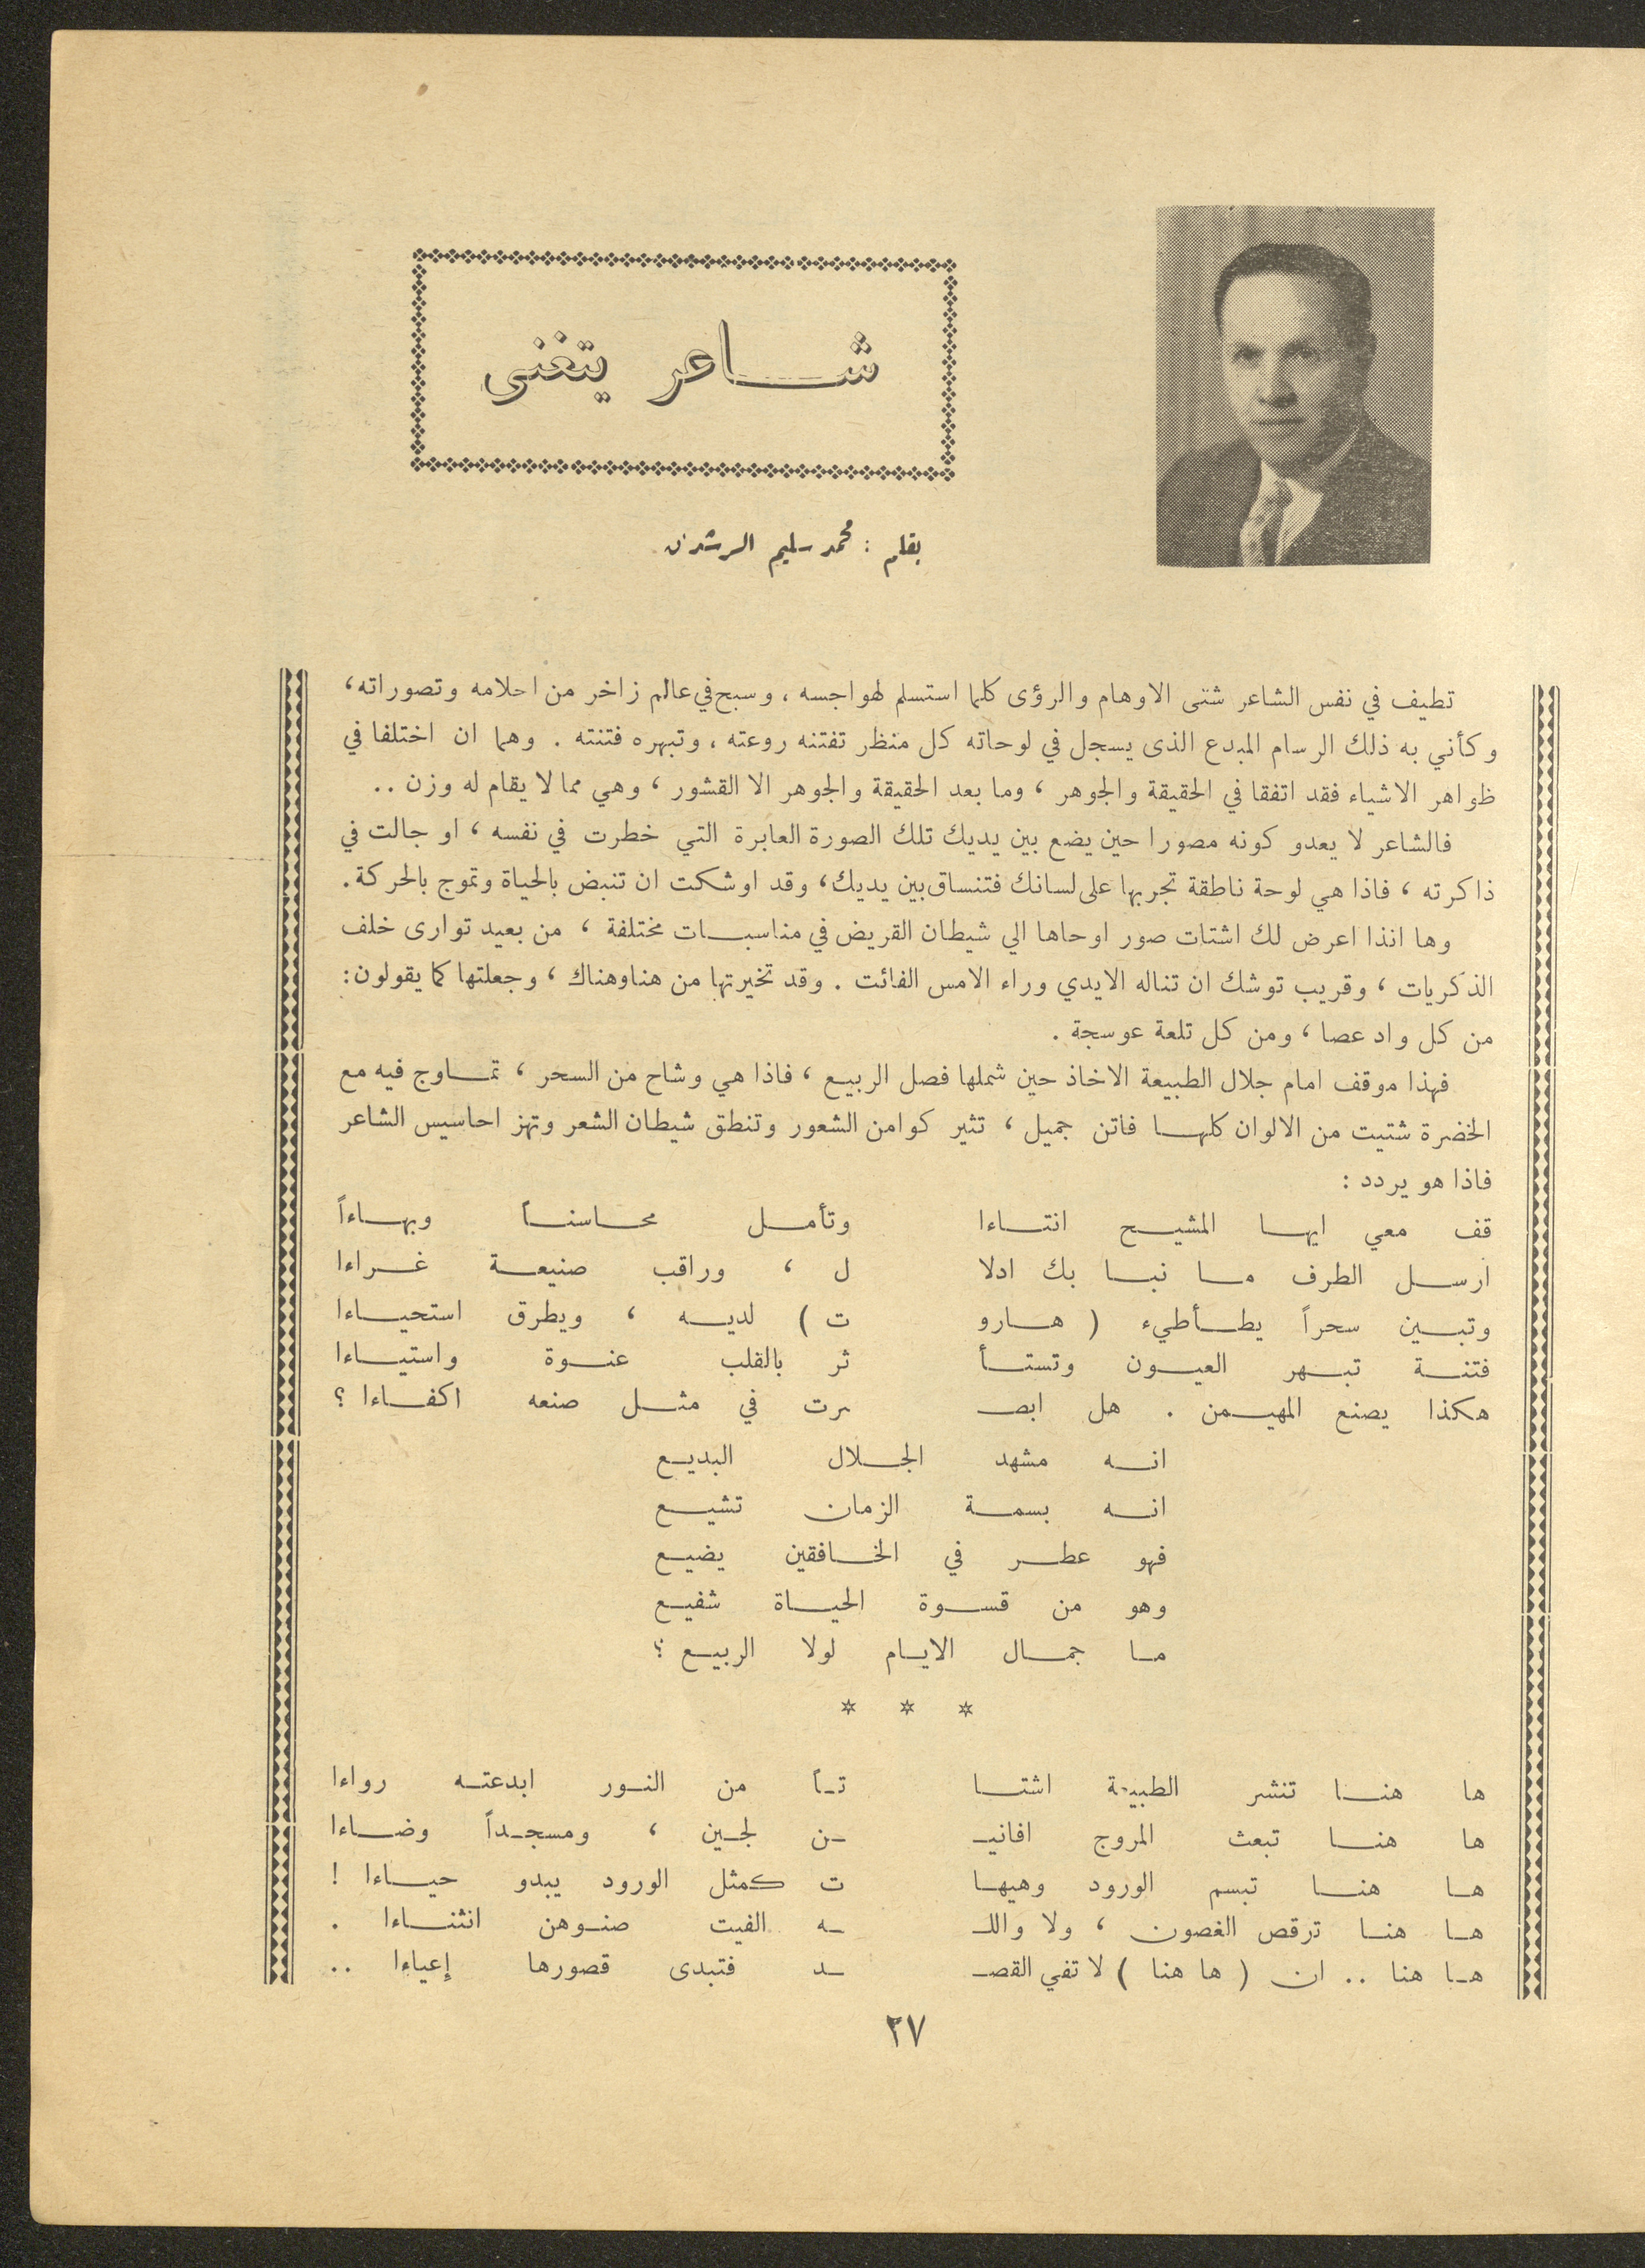 شاعر يتغنى
بقلم : محمد سليم الرشدان
تطيف في نفس الشاعر شتى الاوهام والرؤى كلما استسلم لهواجسه ، وسبح في عالم زاخر من احلامه وتصوراته،
وكأني به ذلك الرسام المبدع الذى يسجل في لوحاته كل منظر تفتنه روعته ، وتبهره فتنته . وهما ان اختلفا في
ظواهر الاشياء فقد اتفقا في الحقيقة والجوهر ، وما بعد الحقيقة والجوهر الا القشور ، وهي مما لا يقام له وزن ..
فالشاعر لا يعدو كونه مصورا حين يضع بين يديك تلك الصورة العابرة التي خطرت في نفسه ، او جالت في
ذاكرته ، فاذا هي لوحة ناطقة تجريها على لسانك فتنساق بين يديك، وقد اوشكت ان تنبض بالحياة وتموج بالحركة.
وها انذا اعرض لك اشتات صور اوحاها الي شيطان القريض في مناسبات مختلفة ، من بعيد توارى خلف
الذكريات ، وقريب توشك ان تناله الايدي وراء الامس الفائت . وقد تخيرتها من هنا وهناك ، وجعلتها كما يقولون:
من كل واد عصا ، ومن كل تلعة عوسجة .
فهذا موقف امام جلال الطبيعة الاخاذ حين شملها فصل الربيع ، فاذا هي وشاح من السحر ، تماوج فيه مع
الخضرة شتيت من الالوان كلها فاتن جميل ، تثير كوامن الشعور وتنطق شيطان الشعر وتهز احاسيس الشاعر
فاذا هو يردد :
قف معي ايها المشيح انتاءا وتأمل محاسناً وبهاءاً
ارسل الطرف ما نبا بك ادلا ل ، وراقب صنيعة غراءا
وتبين سحراً يطأطيء ( هارو ت ) لديه ، ويطرق استحياءا
فتنة تبهر العيون وتستأ ثر بالقلب عنوة واستياءا
هكذا يصنع المهيمن . هل ابصـ ـرت في مثل صنعه اكفاءا ؟
انه مشهد الجلال البديع
انه بسمة الزمان تشيع
فهو عطر في الخافقين يضيع
وهو من قسوة الحياة شفيع
ما جمال الايام لولا الربيع ؟
* * *
ها هنا تنشر الطبيعة اشتا تاً من النور ابدعته رواءا
ها هنا تبعث المروج افانيـ ـن لجين ، ومسجداً وضاءا
ها هنا تبسم الورود وهيها ت كمثل الورود يبدو حياءا !
ها هنا ترقص الغصون ، ولا واللـ ـه الفيت صنوهن انثناءا .
ها هنا .. ان ( ها هنا ) لا تفي القصـ ـد فتبدى قصورها إعياءا ..
٢٧